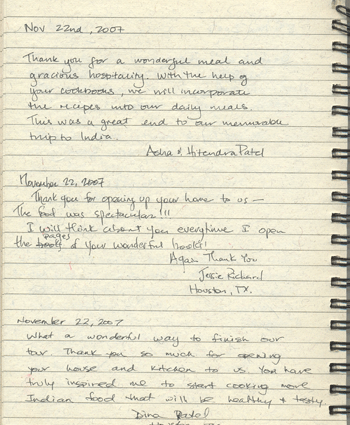 Nov 22nd, 2007
Thank you for a wonderful meal and
gracious hospitality. With the help of
your cookbooks, we will incorporate
the recipes into our daily meals.
This was a great end to our memorable
trip to India.
Asha & Hitendra Patel
November 22, 2007
Thank you for opening up your home to us –
The food was spectacular!!!
I will think about you everytime I open
the pages of your wonderful books!
Again Thank You
Jessie Richard
Houston, TX.
November 22, 2007
What a wonderful way to finish our
tour Thank you so much for opening
your house and kitchen to us. You have
truly inspired me to start cooking more
Indian food that will be healthy & tasty.
Dina Patel